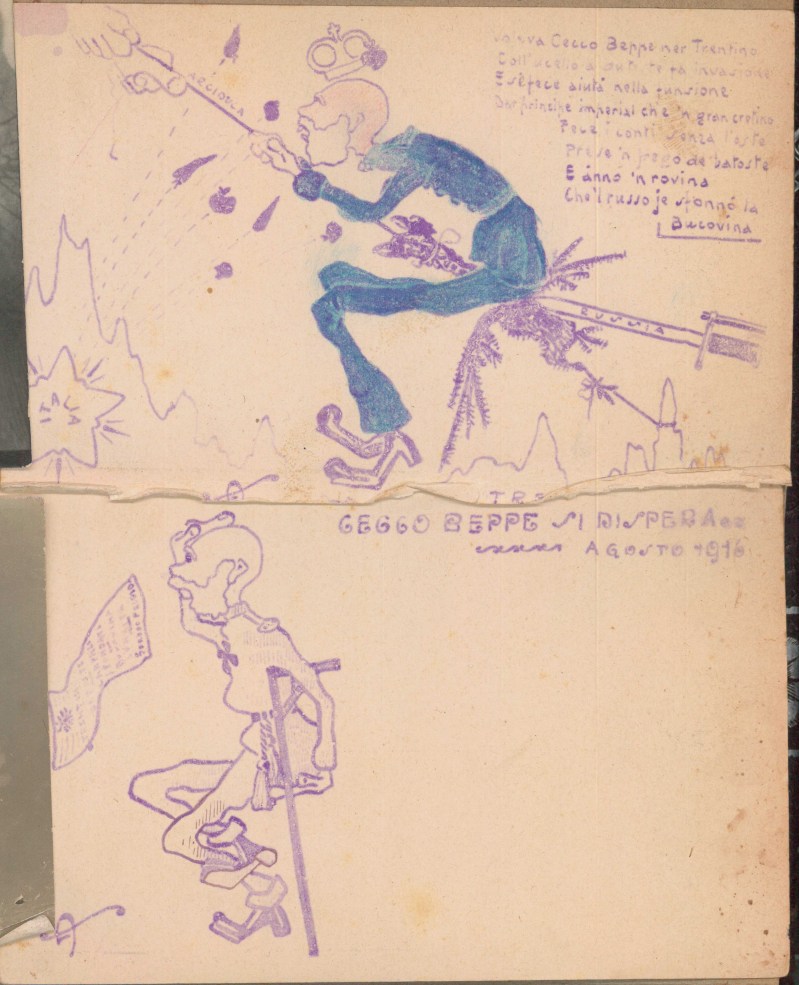 Cecco Beppe ner Trentino
Coll'ucello a fa invasione
E se fece aiutà nella funsione
Dar principe imperial che 'n gran cretino
Fece i conti senza l'oste
Prese 'n frego de batoste
E ànno 'n rovina
Che'l russo je sfonnò la
Bucovina
ARCIDUCA
RUSSIA
CECCO BEPPE SI DISPERA
AGOSTO 1916